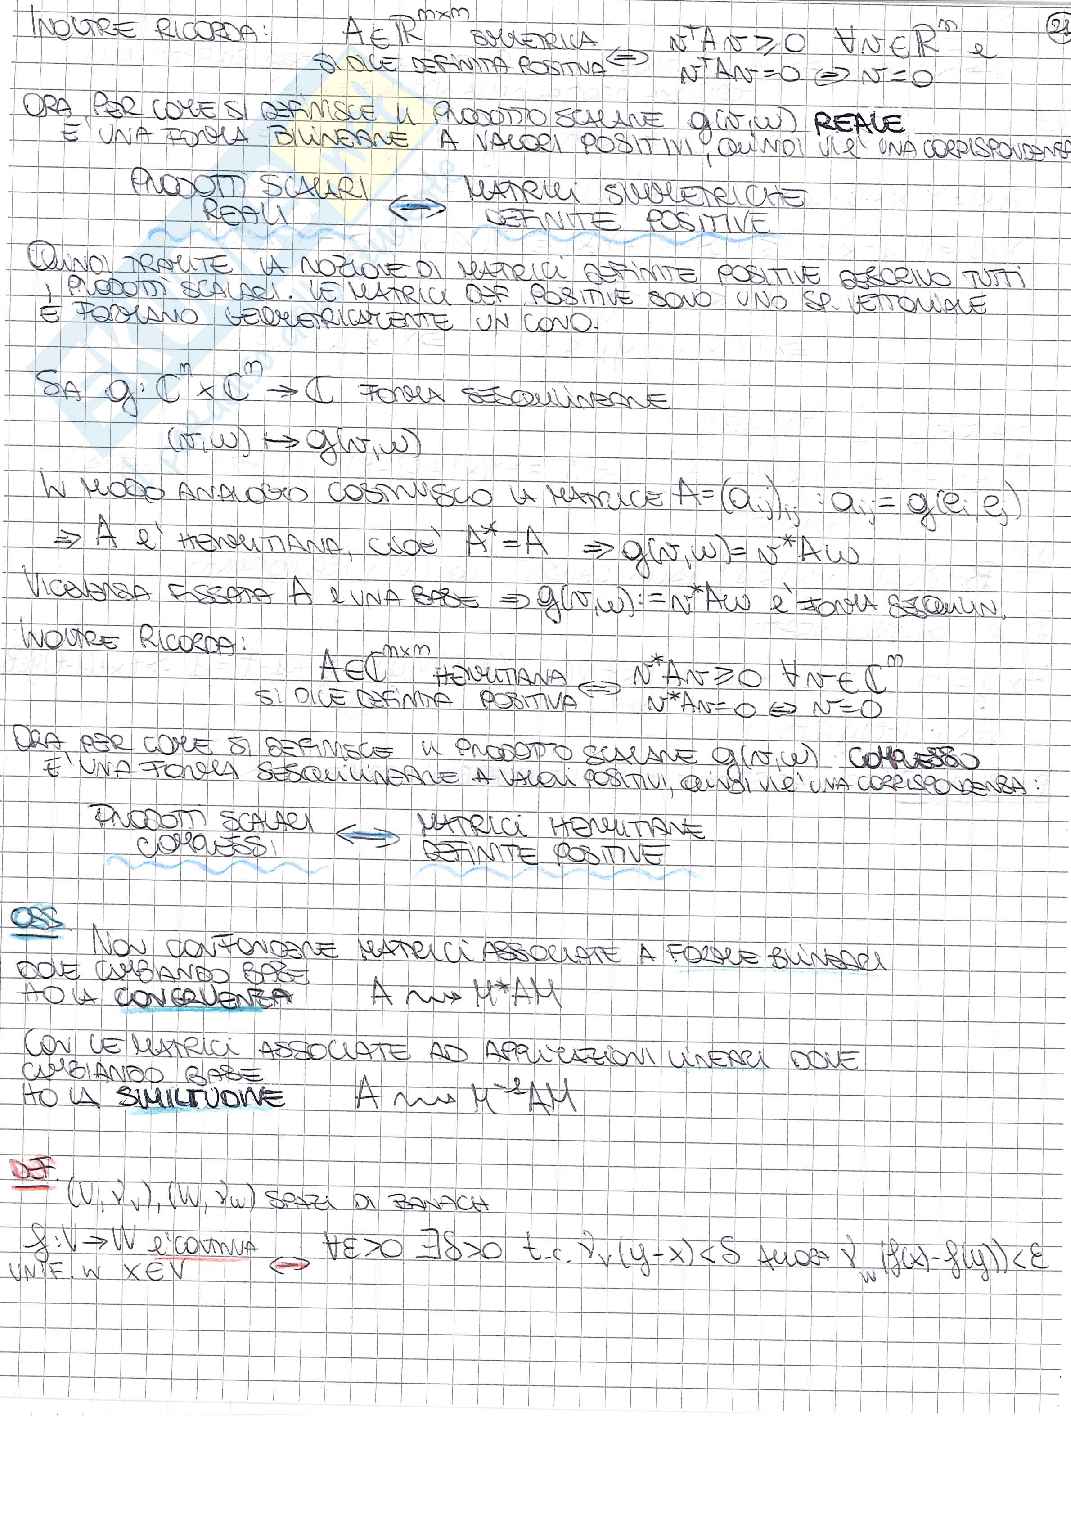 INOLTRE RICORDA: A∈ℝ^{n×n} SIMMETRICA v^T A v ≥ 0 ∀v∈ℝ^n e
SI DICE DEFINITA POSITIVA ⟺ v^T A v = 0 ⟺ v = 0
ORA PER COME SI DEFINISCE IL PRODOTTO SCALARE g(v,w) REALE
E' UNA FORMA BILINEARE A VALORI POSITIVI, QUINDI VI E' UNA CORRISPONDENZA
PRODOTTI SCALARI ⟷ MATRICI SIMMETRICHE
REALI DEFINITE POSITIVE
QUINDI TRAMITE LA NOZIONE DI MATRICI DEFINITE POSITIVE DESCRIVO TUTTI
I PRODOTTI SCALARI. LE MATRICI DEF POSITIVE SONO UNO SP. VETTORIALE
E FORMANO GEOMETRICAMENTE UN CONO.
SIA g: ℂ^n × ℂ^n → ℂ FORMA SESQUILINEARE
(v,w) ↦ g(v,w)
IN MODO ANALOGO COSTRUISCO LA MATRICE A=(a_ij)_ij : a_ij = g(e_i e_j)
⇒ A E' HERMITIANA, CIOE' A*=A ⇒ g(v,w)= v*Aw
VICEVERSA FISSATA A E UNA BASE ⇒ g(v,w):= v*Aw E' FORMA SESQUILIN.
INOLTRE RICORDA:
A∈ℂ^{n×n} HERMITIANA ⟺ v*Av ≥ 0 ∀v∈ℂ^n
SI DICE DEFINITA POSITIVA v*Av=0 ⟺ v=0
ORA PER COME SI DEFINISCE IL PRODOTTO SCALARE g(v,w) COMPLESSO
E' UNA FORMA SESQUILINEARE A VALORI POSITIVI, QUINDI VI E' UNA CORRISPONDENZA:
PRODOTTI SCALARI ⟷ MATRICI HERMITIANE
COMPLESSI DEFINITE POSITIVE
OSS
NON CONFONDERE MATRICI ASSOCIATE A FORME BILINEARI
DOVE CAMBIANDO BASE
HO LA CONGRUENZA A ⇝ M*AM
CON LE MATRICI ASSOCIATE AD APPLICAZIONI LINEARI DOVE
CAMBIANDO BASE
HO LA SIMILITUDINE A ⇝ M⁻¹AM
DEF.
(V,ν_V), (W,ν_W) SPAZI DI BANACH
f: V→W e' CONTINUA ⟺ ∀ε>0 ∃δ>0 t.c. ν_V(y-x)<δ ALLORA ν_W(f(x)-f(y))<ε
UNIF. IN X∈V